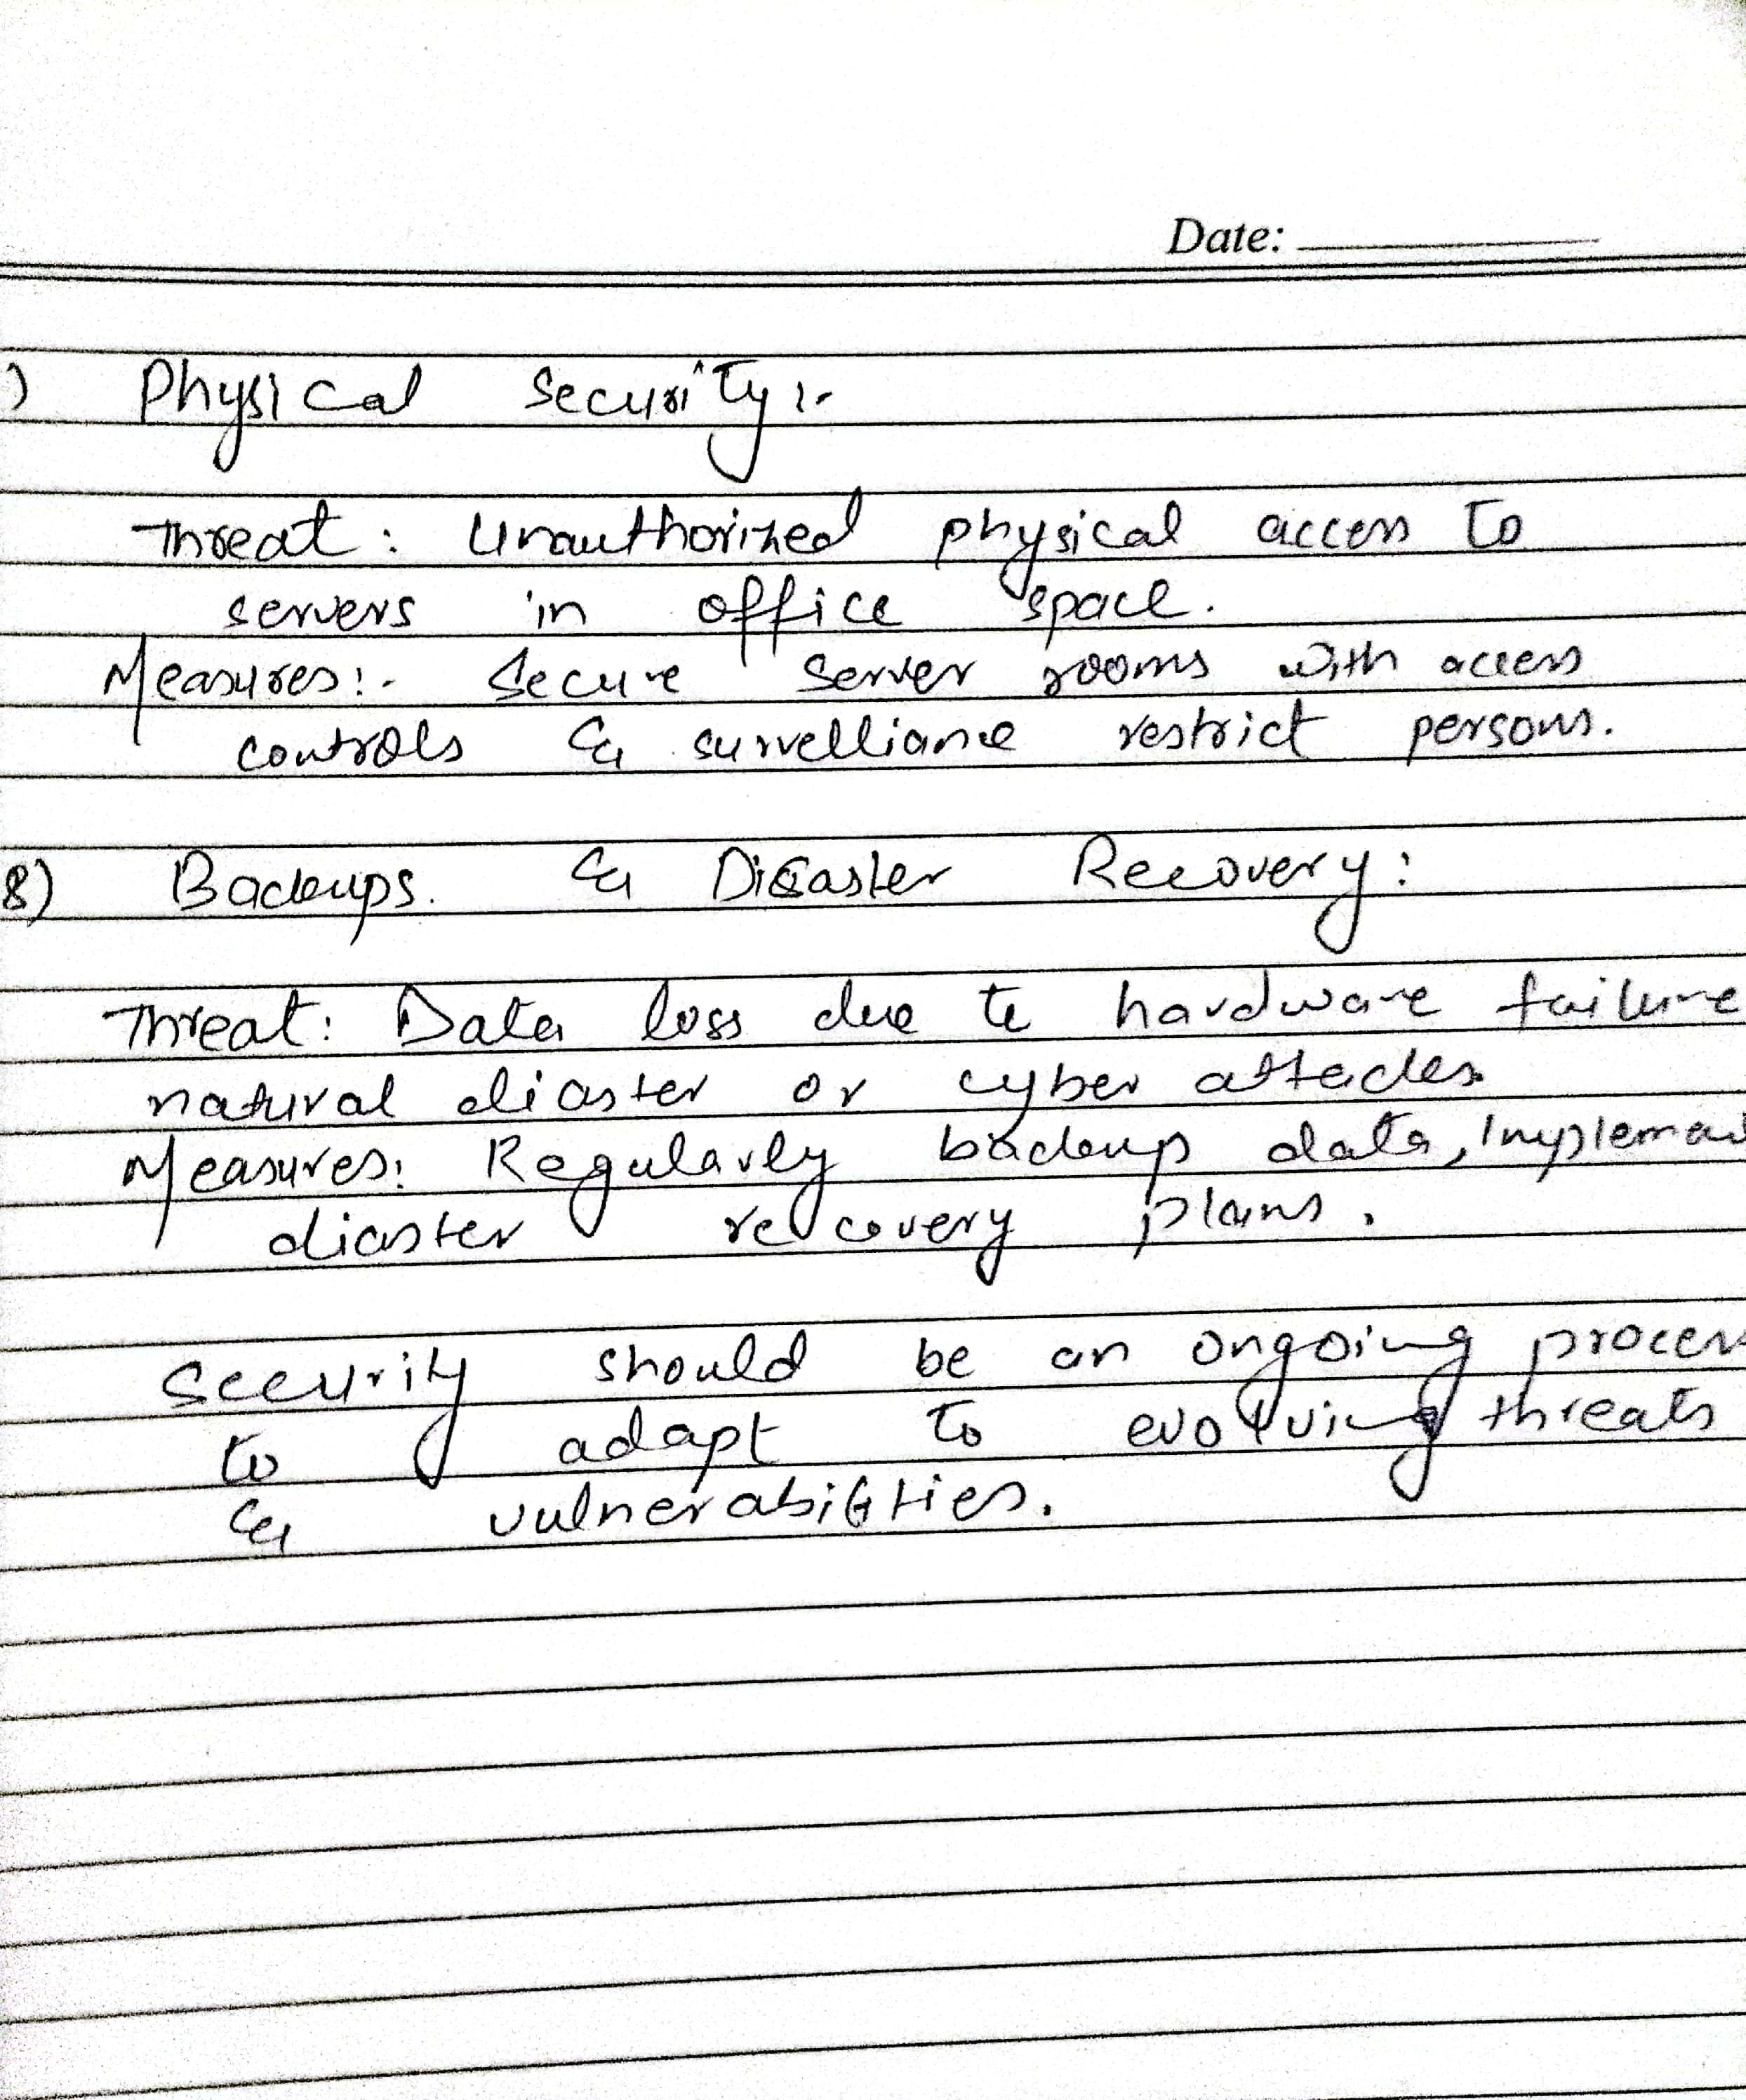 Date:
) Physical Security:-
Threat: Unauthorized physical access to
servers in office space.
Measures:- Secure server rooms with access
controls & survelliance restrict persons.
8) Backups. & Disaster Recovery:
Threat: Data loss due to hardware failure
natural diaster or cyber attacks.
Measures: Regularly backup data, Implemen
diaster recovery plans.
Security should be an ongoing process
to adapt to evolving threats
& vulnerabilities.